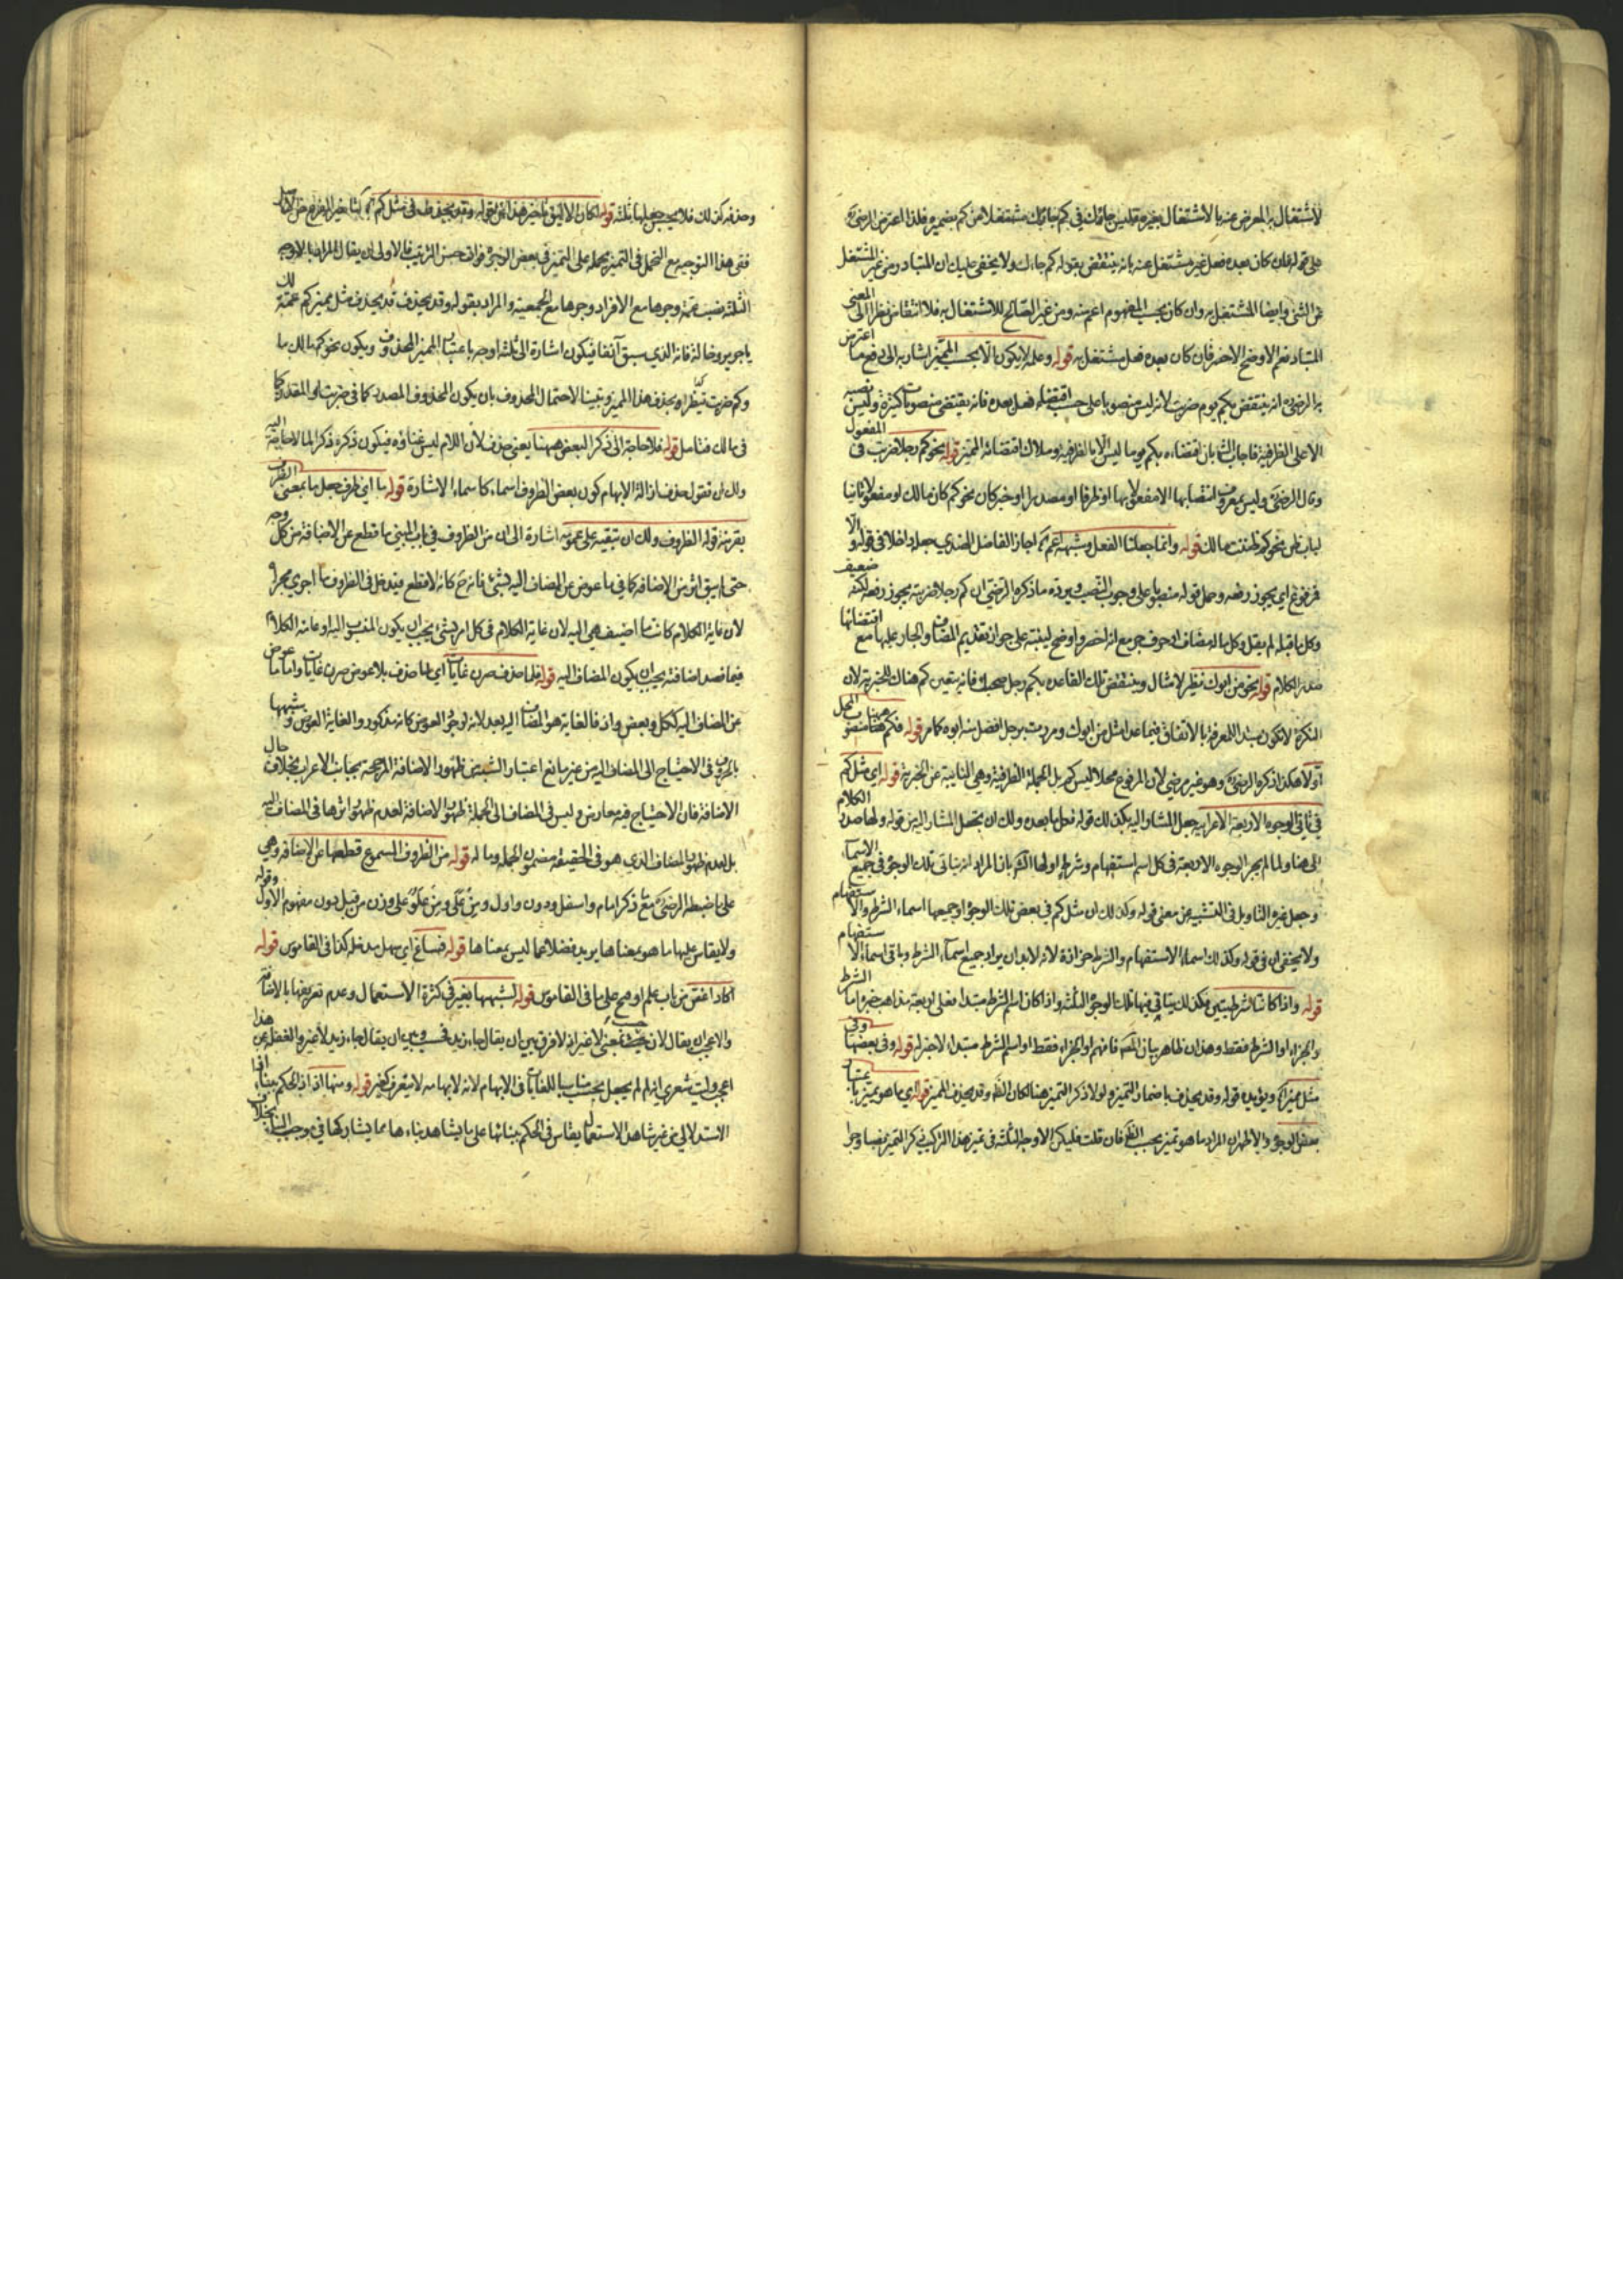 لاشتغال به المعرض عنه بالاشتغال بغيره فليس جاؤك في كم جاؤك مشتغلا عن كم بضميره فلذا اعترض الرضي
على قوله فان كان بعده فعل غير مشتغل عنه بانه ينتقض بقوله كم جاءك ولا يخفى عليك ان المتبادر من غير المشتغل
عن الشئ وايضا المشتغل به وان كان بحسب المفهوم اعم منه ومن غير الصالح للاشتغال به فلا انتقاض نظرا الى المعنى
المتبادر نعم الاوضح الاخصر فان كان بعده فعل مشتغل به قوله وعمله لا يكون الا بحسب المميز اشار به الى دفع ما اعترض
به الرضي انه ينتقض بكم يوم ضربت لانه ليس منصوبا على حسب اقتضاء فعل بعده فانه يقتضي منصوبات كثيرة وليس نصبه
الا على الظرفية فاجاب الشا بان اقتضاءه بكم يوما ليس الا بالظرفية وملاك اقتضائه المميز قوله نحو كم رجلا ضربت في المفعول
وقال الرضي وليس بمعروف انتصابها الا مفعولا بها او ظرفا او مصدرا او خبر كان نحو كم كان مالك او مفعولا ثانيا
لباب ظن نحو كم ظننت مالك قوله وانما جعلنا الفعل وشبهه اعم اجاز الفاضل الهندي جعله داخلا في قوله والا
فمرفوع اي يجوز رفعه وحمل قوله منصوبا على وجوب النصب ويرده ما ذكره الرضي ان كم رجلا ضربته يجوز رفعه لكنه ضعيف
وكل ما قبله لم يقل وكل ما له مضاف او حرف جر مع انه اخصر واوضح لينبه على جواز تقديم المضاف والجار عليها مع اقتضائها
صدر الكلام قوله نحو من ابوك نظير لا مثال وينتقض تلك القاعدة بكم رجل صحبك فانه يتعين كم هناك للخبرية لان
النكرة لا تكون مبتدأ للمعرفة بالاتفاق فيما عدا مثل من ابوك ومررت برجل افضل منه ابوه كما مر قوله فكم ههنا منصوب المحل
اولا هكذا ذكره الرضي وهو غير مرضي لان المرفوع محلا ليس كم بل الجملة الظرفية وهي النايبة عن الخبرية قوله اي مثل كم
في تأتي الوجوه الاربعة الاعرابية جعل المشار اليه بكذلك قوله فكل ما بعده ولك ان تجعل المشار اليه من قوله ولهما صدر الكلام
الى هنا ولما لم يجر الوجوه الاربعة في كل اسم استفهام وشرط اولها الش بان المراد انه يتأتى تلك الوجوه في جميع الاسماء
وجعل غيره التاويل في التشبيه من معنى قوله وكذلك ان مثل كم في بعض تلك الوجوه او جميعها اسماء الشرط والاستفهام
ولا يخفى ان في قوله وكذلك اسماء الاستفهام والشرط حزازة لانه لا بد ان يراد جميع اسماء الشرط وباقي اسماء الاستفهام
قوله واذا كانتا شرطيتين فكذلك يتأتى فيها تلك الوجوه الثلثة واذا كان اسم الشرط مبتدأ فعلى اربعة مذاهب خبره اما الشرط
والجزاء او الشرط فقط وهذان ظاهر بيان المص فافهم او الجزاء فقط او اسم الشرط مبتدأ لا خبر له قوله وفي بعضها وفي
مثل مميز كم ويؤيده قوله وقد يحذف باضمار التمييز ولو لا ذكر التمييز هنا لكان الظ وقد يحذف المميز قوله اي ما هو تمييز باعتبار
بعض الوجوه والاظهر ان المراد ما هو تمييز بحسب الظ فان قلت فليكن الاوجه الثلثة في تمييز هذا التركيب ذكر التمييز نصبا وجرا
وحذفه كذلك فلا يجب جعلها ثلثة قوله لكان الاليق تاخير هذا عن قوله وقد يحذف في مثل كم
ففي هذا التوجيه مع التحمل في التمييز يحمله على التمييز في بعض الوجوه فوات حسن الترتيب فالاولى ان يقال المراد بالاوجه
الثلثة نصب عمة وجرها مع الافراد وجرها مع الجمعية والمراد بقوله وقد يحذف قد يحذف مثل مميز كم عمة لك
يا جرير وخالة فانه الذي سبق آنفا فيكون اشارة الى ثلثة اوجه باعتبار المميز المحذوف ويكون نحو كم مالك
وكم ضربت تنظيرا بحذف هذا المميز وتبيينا لاحتمال المحذوف بان يكون المحذوف المصدر كما في ضربت او المقدار كما
في مالك فتامل قوله فلا حاجة الى ذكر البعض ههنا يعني حذف لان اللام ليس غناؤه فيكون ذكره ذكرا لما لا حاجة اليه
ولك ان تقول حذف ازالة الابهام كون بعض الظروف اسماء كاسماء الاشارة قوله ما اي ظرف جعل ما بمعنى الظرف
بقرينة قوله الظروف ولك ان تبقيه على عمومه اشارة الى ان من الظروف في باب المبني ما قطع عن الاضافة من كل وجه
حتى لم يبق اثر من الاضافة كما في ما عوض عن المضاف اليه بشئ فانه ح كانه لا قطع فيدخل في الظروف ما اجري مجراه
لان غاية الكلام كانت ما اضيف هي اليه لان غاية الكلام في كل امر شئ يجب ان يكون المنسوب اليه او عامة الكلام
فيما قصد اضافته يجب ان يكون المضاف اليه قوله فلما حذف صرن غايات اي لما حذف بلا عوض صرن غايات واما ما عوض
عن المضاف اليه ككل وبعض واذ فالغاية هو المضاف اليه بعد لانه لوجود العوض كانه مذكور والغاية العوض وشبهها
بالحرف في الاحتياج الى المضاف اليه من غير مانع اعتبار الشبه من ظهور الاضافة المرجحة بجانب الاعراب بخلاف حال
الاضافة فان الاحتياج فيه معارض وليس في المضاف الى الجملة ظهور الاضافة لعدم ظهور اثرها في المضاف اليه
بل لعدم ظهور المضاف الذي هو في الحقيقة مضمون الجملة وما له قوله من الظروف المسموع قطعها عن الاضافة وهي
على ما ضبطه الرضي مع ذكر امام واسفل ودون واول ومن عل ومن علو على وزن من قبل دون مفهوم الاول وقوله
ولا يقاس عليها ما هو بمعناها يريد فضلا عما ليس بمعناها قوله فساغ اي سهل مدخله كذا في القاموس قوله
اكاد اغص من باب علم اوضح على ما في القاموس قوله لشبهها بغير في كثرة الاستعمال وعدم تعريفها بالاضافة
والاعجب ان يقال لان حسب بمعنى لا غير اذ لا فرق بين ان يقال جاء زيد فحسب وبين ان يقال جاء زيد لا غير والغفلة عن هذا
اعجب وليت شعري انه لم لم يجعل حسب مناسبا للغايات في الابهام لانه لابهامه لا يتعرف كغير قوله ومنها اذا اذ الحكم ببناء اذا
الاستدلالي من غير شاهد الاستعمال يقاس في الحكم ببنائها على ما يشاهد بناءها مما يشاركها في موجب البناء بخلاف